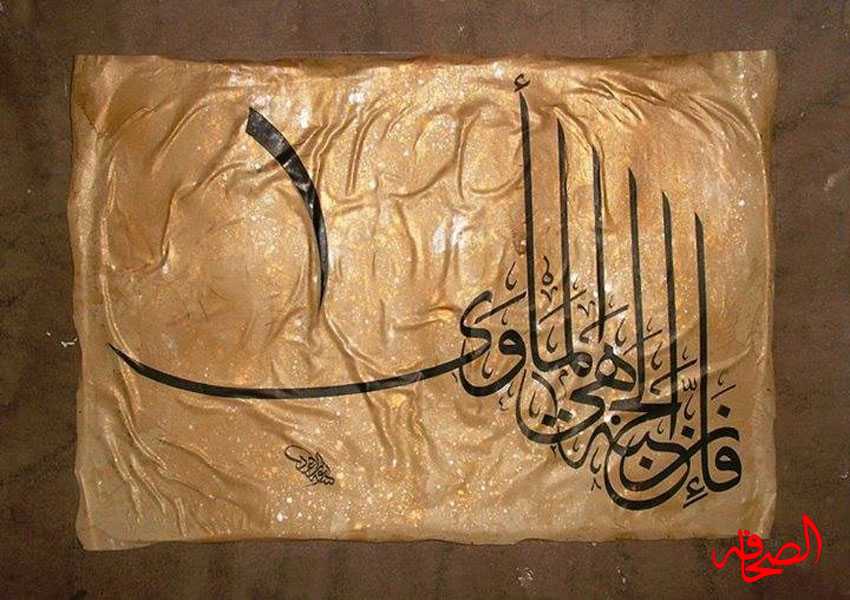 فَإِنَّ الجنة هي المأوى
الصحافه